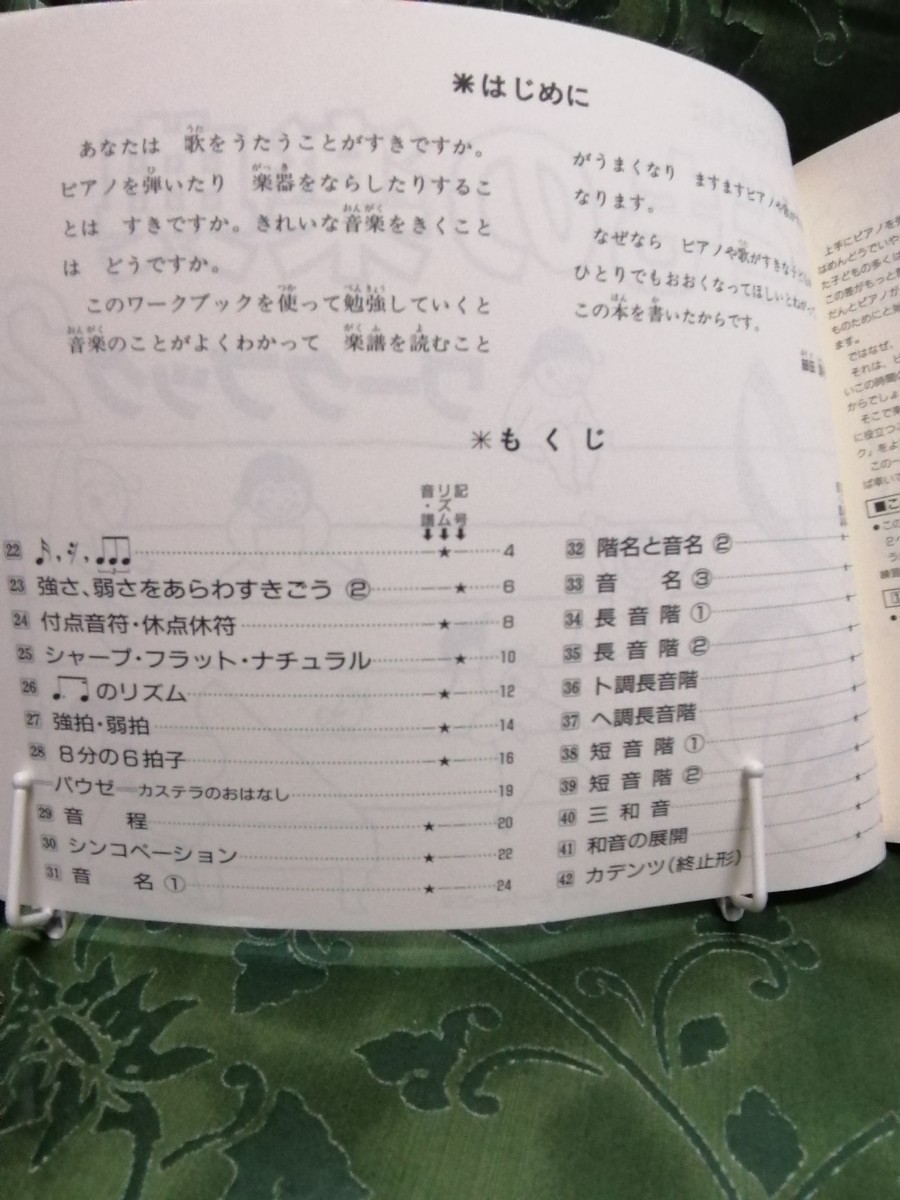 ✳はじめに
あなたは 歌をうたうことがすきですか。
ピアノを弾いたり 楽器をならしたりするこ
とは すきですか。きれいな音楽をきくこと
は どうですか。
このワークブックを使って勉強していくと
音楽のことがよくわかって 楽譜を読むこと
がうまくなり ますますピアノや
なります。
なぜなら ピアノや歌がすきな子
ひとりでもおおくなってほしいと
この本を書いたからです。
✳もくじ
音・譜 リズム 記号
22 ♪, 4
23 強さ、弱さをあらわすきごう ② ★ 6
24 付点音符・休点休符 ★ 8
25 シャープ・フラット・ナチュラル ★ 10
26 のリズム ★ 12
27 強拍・弱拍 ★ 14
28 8分の6拍子 ★ 16
パウゼ―カステラのおはなし 19
29 音程 ★ 20
30 シンコペーション ★ 22
31 音名① ★ 24
32 階名と音名②
33 音名③
34 長音階①
35 長音階②
36 ト調長音階
37 ヘ調長音階
38 短音階①
39 短音階②
40 三和音
41 和音の展開
42 カデンツ(終止形)
上手にピアノを
はめんどうでいや
た子どもの多くは
この差がもっと
だんとピアノが
ものためにと
ます。
ではなぜ、
それは、
いこの時間の
からでしょ
そこで
に役立つ
ク』をよ
この一
ば幸いで